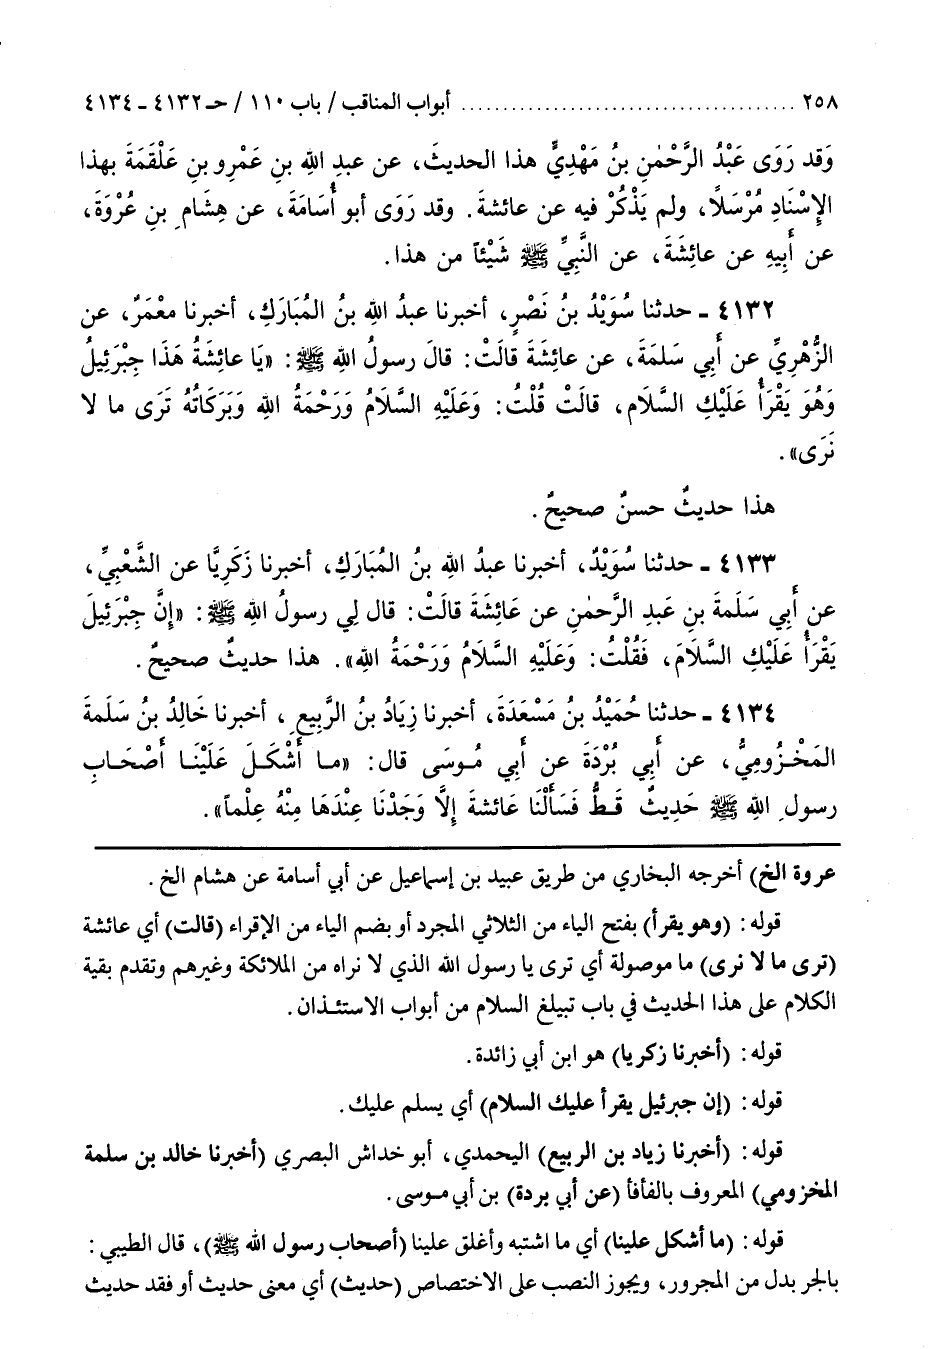 ٢٥٨ ........................................ أبواب المناقب / باب ١١٠ / حـ ٤١٣٢ ـ ٤١٣٤
وَقد رَوَى عَبْدُ الرَّحْمٰنِ بنُ مَهْدِيٍّ هذا الحديثَ، عن عبدِ اللهِ بنِ عَمْرِو بنِ عَلْقَمَةَ بهذا
الإسْنَادِ مُرْسَلًا، ولم يَذْكُرْ فيه عن عائشةَ. وقد رَوَى أبو أُسَامَةَ، عن هِشَامِ بنِ عُرْوَةَ،
عن أَبِيهِ عن عائِشَةَ، عن النَّبِيِّ ﷺ شَيْئاً من هذا.
٤١٣٢ ـ حدثنا سُوَيْدُ بنُ نَصْرٍ، أخبرنا عبدُ اللهِ بنُ المُبَارَكِ، أخبرنا معْمَرٌ، عن
الزُّهْرِيِّ عن أَبِي سَلَمَةَ، عن عائِشَةَ قالَتْ: قالَ رسولُ اللهِ ﷺ: «يَا عائِشَةُ هَذَا جِبْرَئِيلُ
وَهُوَ يَقْرَأُ عَلَيْكِ السَّلَامَ، قالَتْ قُلْتُ: وَعَلَيْهِ السَّلَامُ وَرَحْمَةُ اللهِ وَبَرَكَاتُهُ تَرَى ما لا
نَرَى».
هذا حديثٌ حسنٌ صحيحٌ.
٤١٣٣ ـ حدثنا سُوَيْدٌ، أخبرنا عبدُ اللهِ بنُ المُبَارَكِ، أخبرنا زَكَرِيَّا عن الشَّعْبِيِّ،
عن أَبِي سَلَمَةَ بنِ عَبدِ الرَّحمٰنِ عن عَائِشَةَ قالَتْ: قال لِي رسولُ اللهِ ﷺ: «إنَّ جِبْرَئِيلَ
يَقْرَأُ عَلَيْكِ السَّلَامَ، فَقُلْتُ: وَعَلَيْهِ السَّلَامُ وَرَحْمَةُ اللهِ». هذا حديثٌ صحيحٌ.
٤١٣٤ ـ حدثنا حُمَيْدُ بنُ مَسْعَدَةَ، أخبرنا زِيَادُ بنُ الرَّبِيعِ، أخبرنا خَالِدُ بنُ سَلَمةَ
المَخْزُومِيُّ، عن أَبِي بُرْدَةَ عن أَبِي مُوسَى قال: «ما أَشْكَلَ عَلَيْنَا أَصْحَابِ
رسولِ اللهِ ﷺ حَدِيثٌ قَطُّ فَسَأَلْنَا عَائشةَ إِلَّا وَجَدْنَا عِنْدَهَا مِنْهُ عِلْماً».
عروة الخ) أخرجه البخاري من طريق عبيد بن إسماعيل عن أبي أسامة عن هشام الخ.
قوله: (وهو يقرأ) بفتح الياء من الثلاثي المجرد أو بضم الياء من الإقراء (قالت) أي عائشة
(ترى ما لا نرى) ما موصولة أي ترى يا رسول الله الذي لا نراه من الملائكة وغيرهم وتقدم بقية
الكلام على هذا الحديث في باب تبيلغ السلام من أبواب الاستئذان.
قوله: (أخبرنا زكريا) هو ابن أبي زائدة.
قوله: (إن جبرئيل يقرأ عليك السلام) أي يسلم عليك.
قوله: (أخبرنا زياد بن الربيع) اليحمدي، أبو خداش البصري (أخبرنا خالد بن سلمة
المخزومي) المعروف بالفأفأ (عن أبي بردة) بن أبي موسى.
قوله: (ما أشكل علينا) أي ما اشتبه وأغلق علينا (أصحاب رسول الله ﷺ)، قال الطيبي:
بالجر بدل من المجرور، ويجوز النصب على الاختصاص (حديث) أي معنى حديث أو فقد حديث